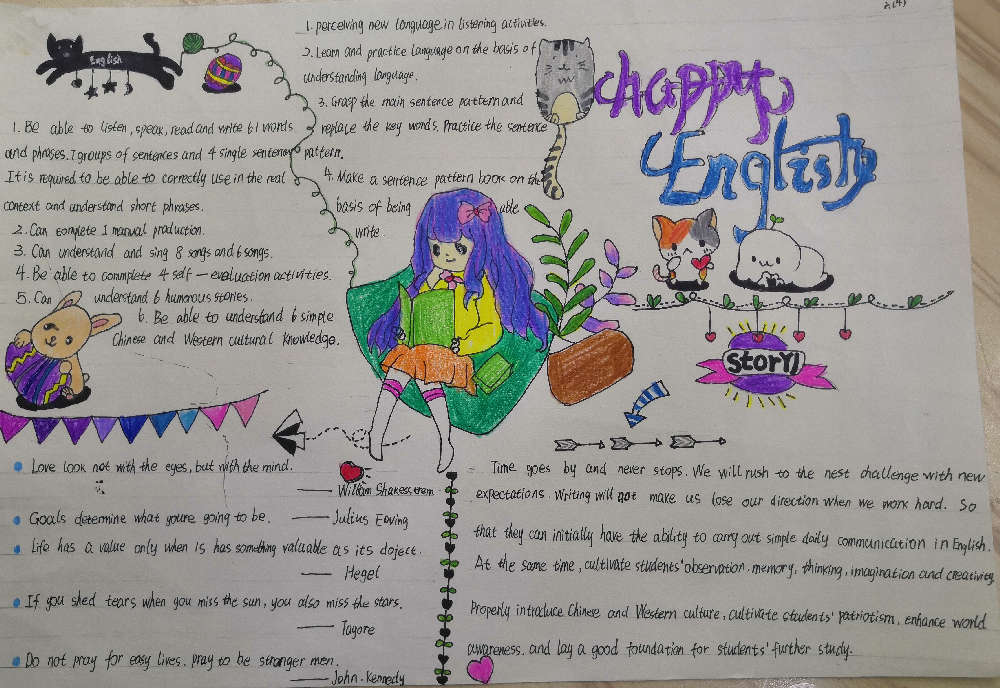 English
1. perceiving new language in listening activities.
2. Learn and practice language on the basis of
understanding language.
3. Grasp the main sentence pattern and
replace the key words. Practice the sentence
pattern.
4. Make a sentence pattern book on the
basis of being able
write.
1. Be able to listen, speak, read and write 61 words
and phrases. 7 groups of sentences and 4 single sentences
It is required to be able to correctly use in the real
context and understand short phrases.
2. Can complete 1 manual production.
3. Can understand and sing 8 songs and 6 songs.
4. Be able to commplete 4 self-evaluation activities.
5. Can understand 6 humerous stories.
6. Be able to understand 6 simple
Chinese and Western cultural knowledge.
Happy
English
Story
Love look not with the eyes, but with the mind.
William Shakesstrem
Goals determine what youre going to be.
Julius Eoving
Life has a value only when is has something valuable as its doject.
Hegel
If you shed tears when you miss the sun, you also miss the stars.
Tagore
Do not pray for easy lives. pray to be stranger men.
John. Kennedy
Time goes by and never stops. We will rush to the nest challenge with new
expectations. Writing will not make us lose our direction when we work hard. So
that they can initially have the ability to carry out simple daily communication in English.
At the same time, cultivate students' observation. memory, thinking, imagination and creativity
Properly introduce Chinese and Western culture, cultivate students' patriotism, enhance world
awareness. and lay a good foundation for students' further study.